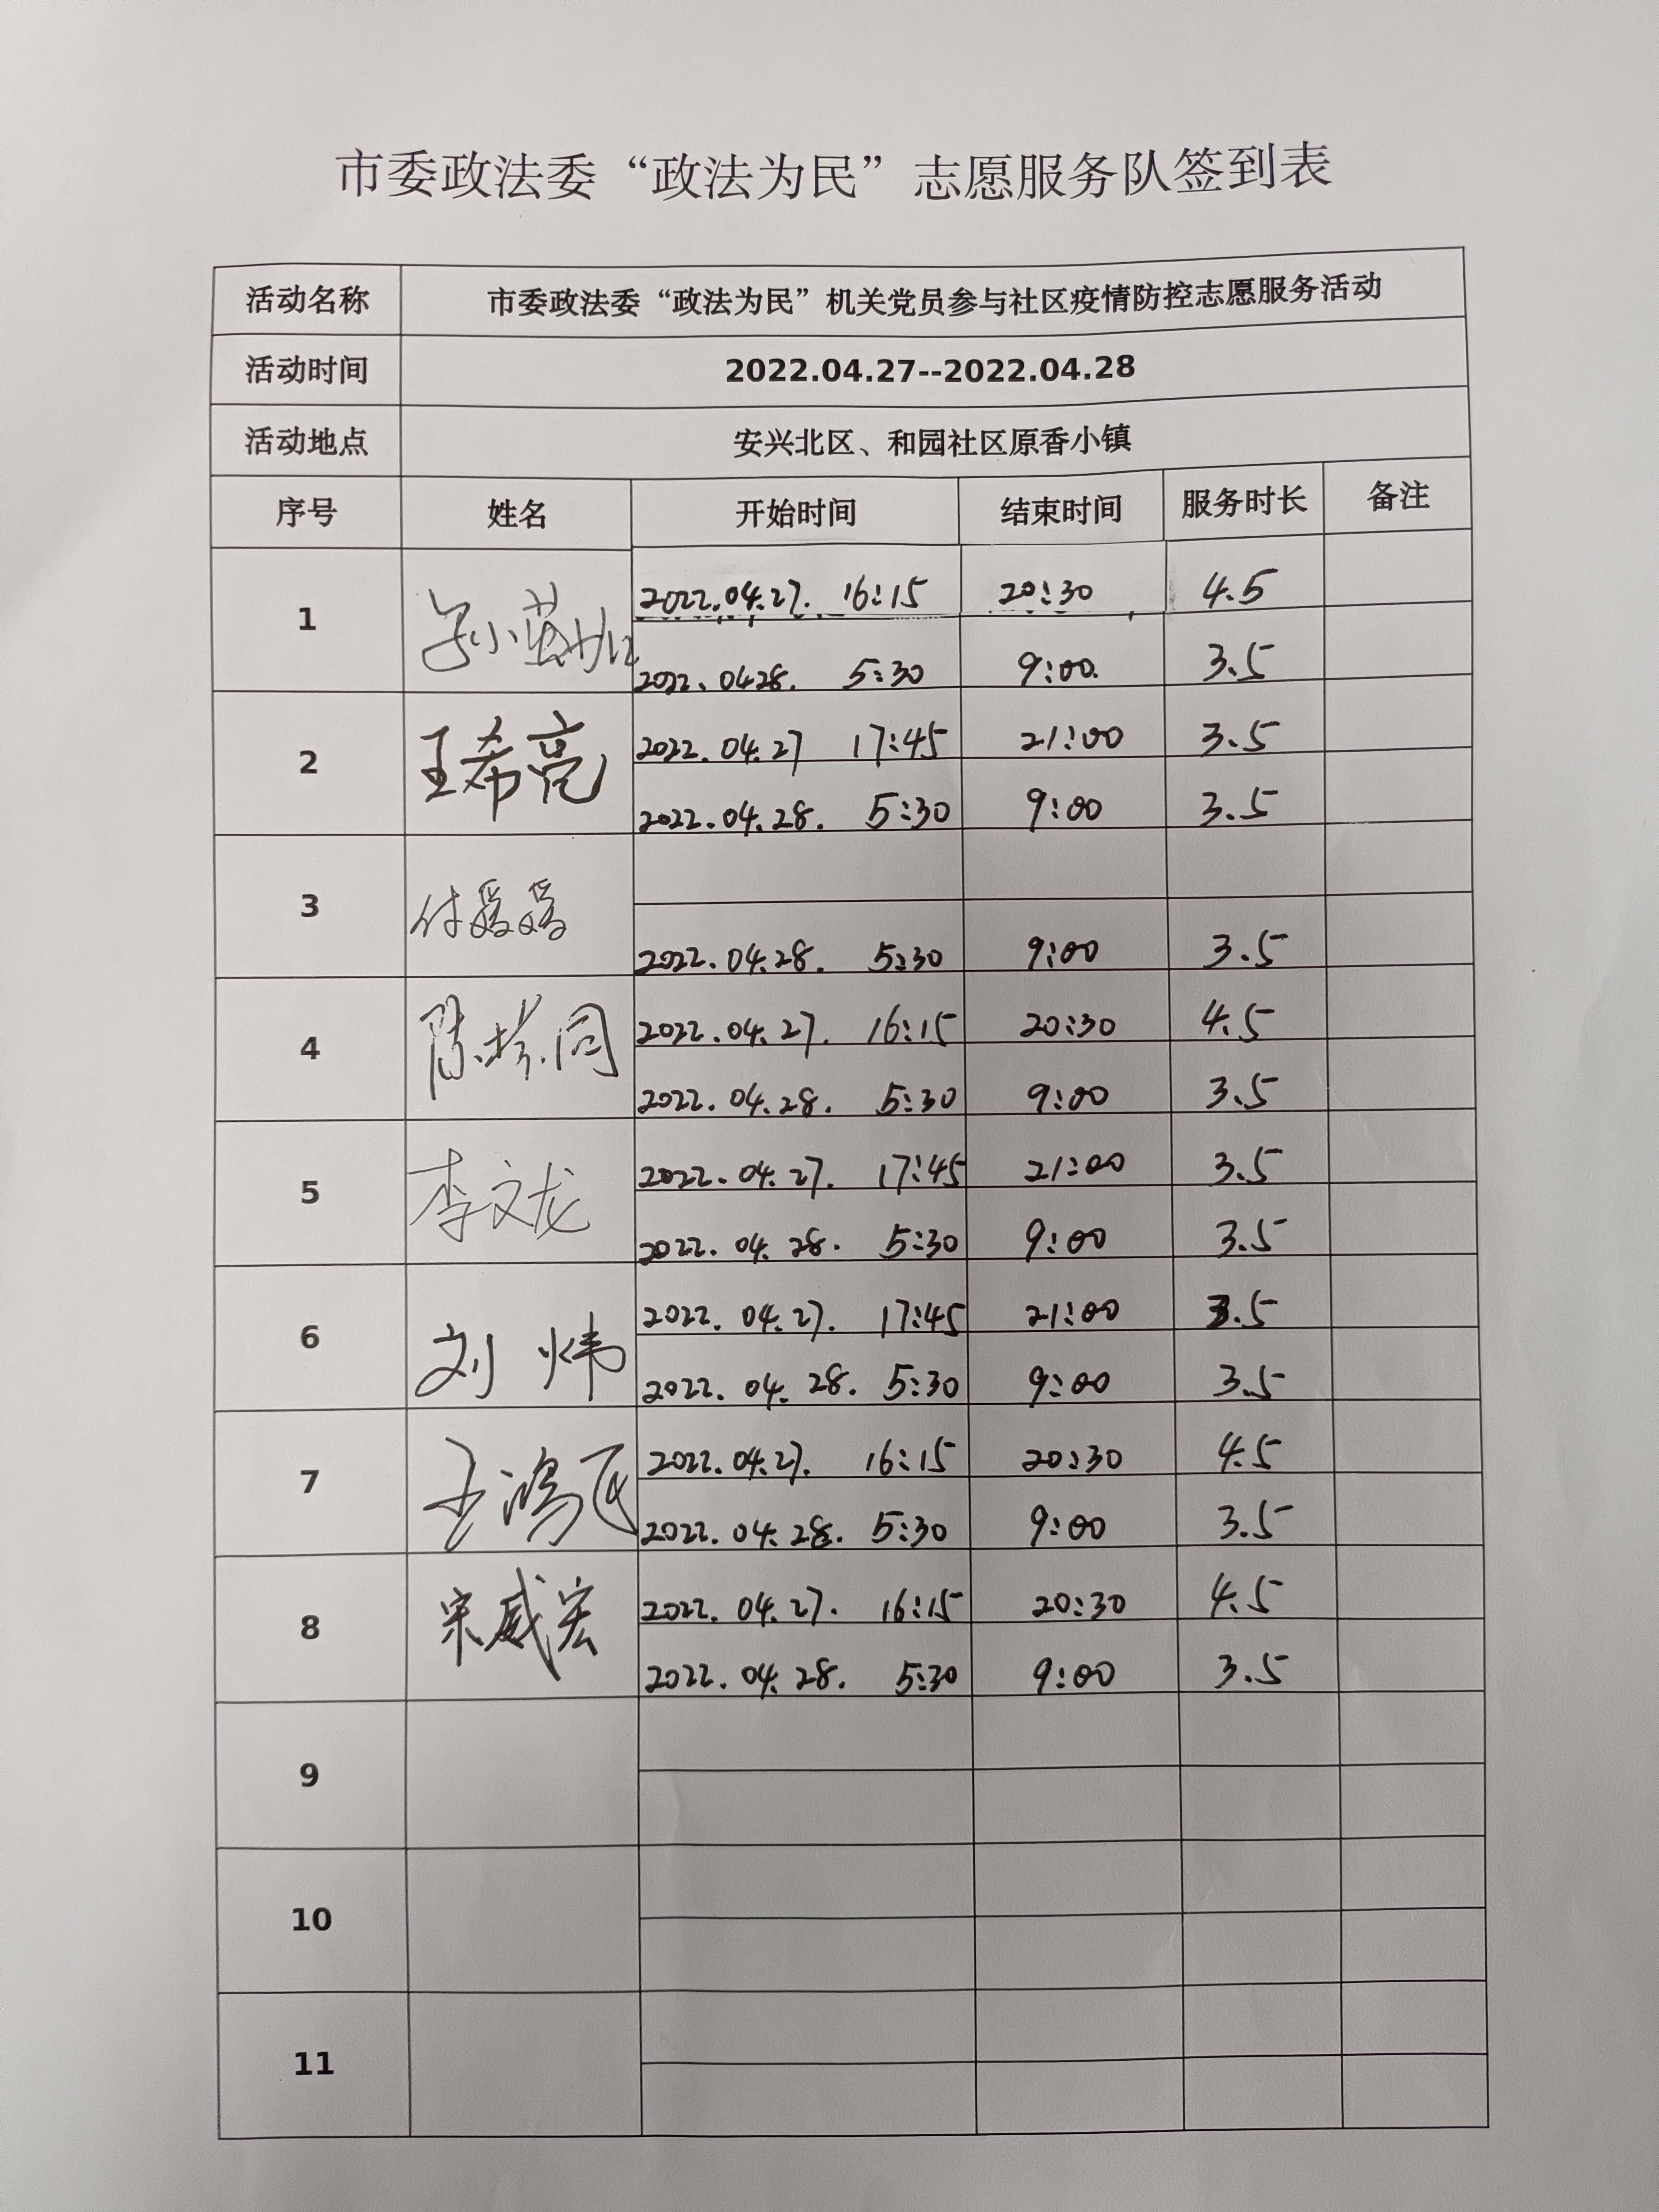 市委政法委“政法为民”志愿服务队签到表
活动名称 市委政法委“政法为民”机关党员参与社区疫情防控志愿服务活动
活动时间 2022.04.27--2022.04.28
活动地点 安兴北区、和园社区原香小镇
序号 姓名 开始时间 结束时间 服务时长 备注
1 2022.04.27. 16:15 20:30 4.5
2022.0428. 5:30 9:00. 3.5
2 王希亮 2022.04.27 17:45 21:00 3.5
2022.04.28. 5:30 9:00 3.5
3 2022.04.28. 5:30 9:00 3.5
4 2022.04.27. 16:15 20:30 4.5
2022.04.28. 5:30 9:00 3.5
5 李文龙 2022.04.27. 17:45 21:00 3.5
2022.04.28. 5:30 9:00 3.5
6 刘炜 2022.04.27. 17:45 21:00 3.5
2022.04.28. 5:30 9:00 3.5
7 王鸿飞 2022.04.27. 16:15 20:30 4.5
2022.04.28. 5:30 9:00 3.5
8 宋威宏 2022.04.27. 16:15 20:30 4.5
2022.04.28. 5:30 9:00 3.5
9
10
11